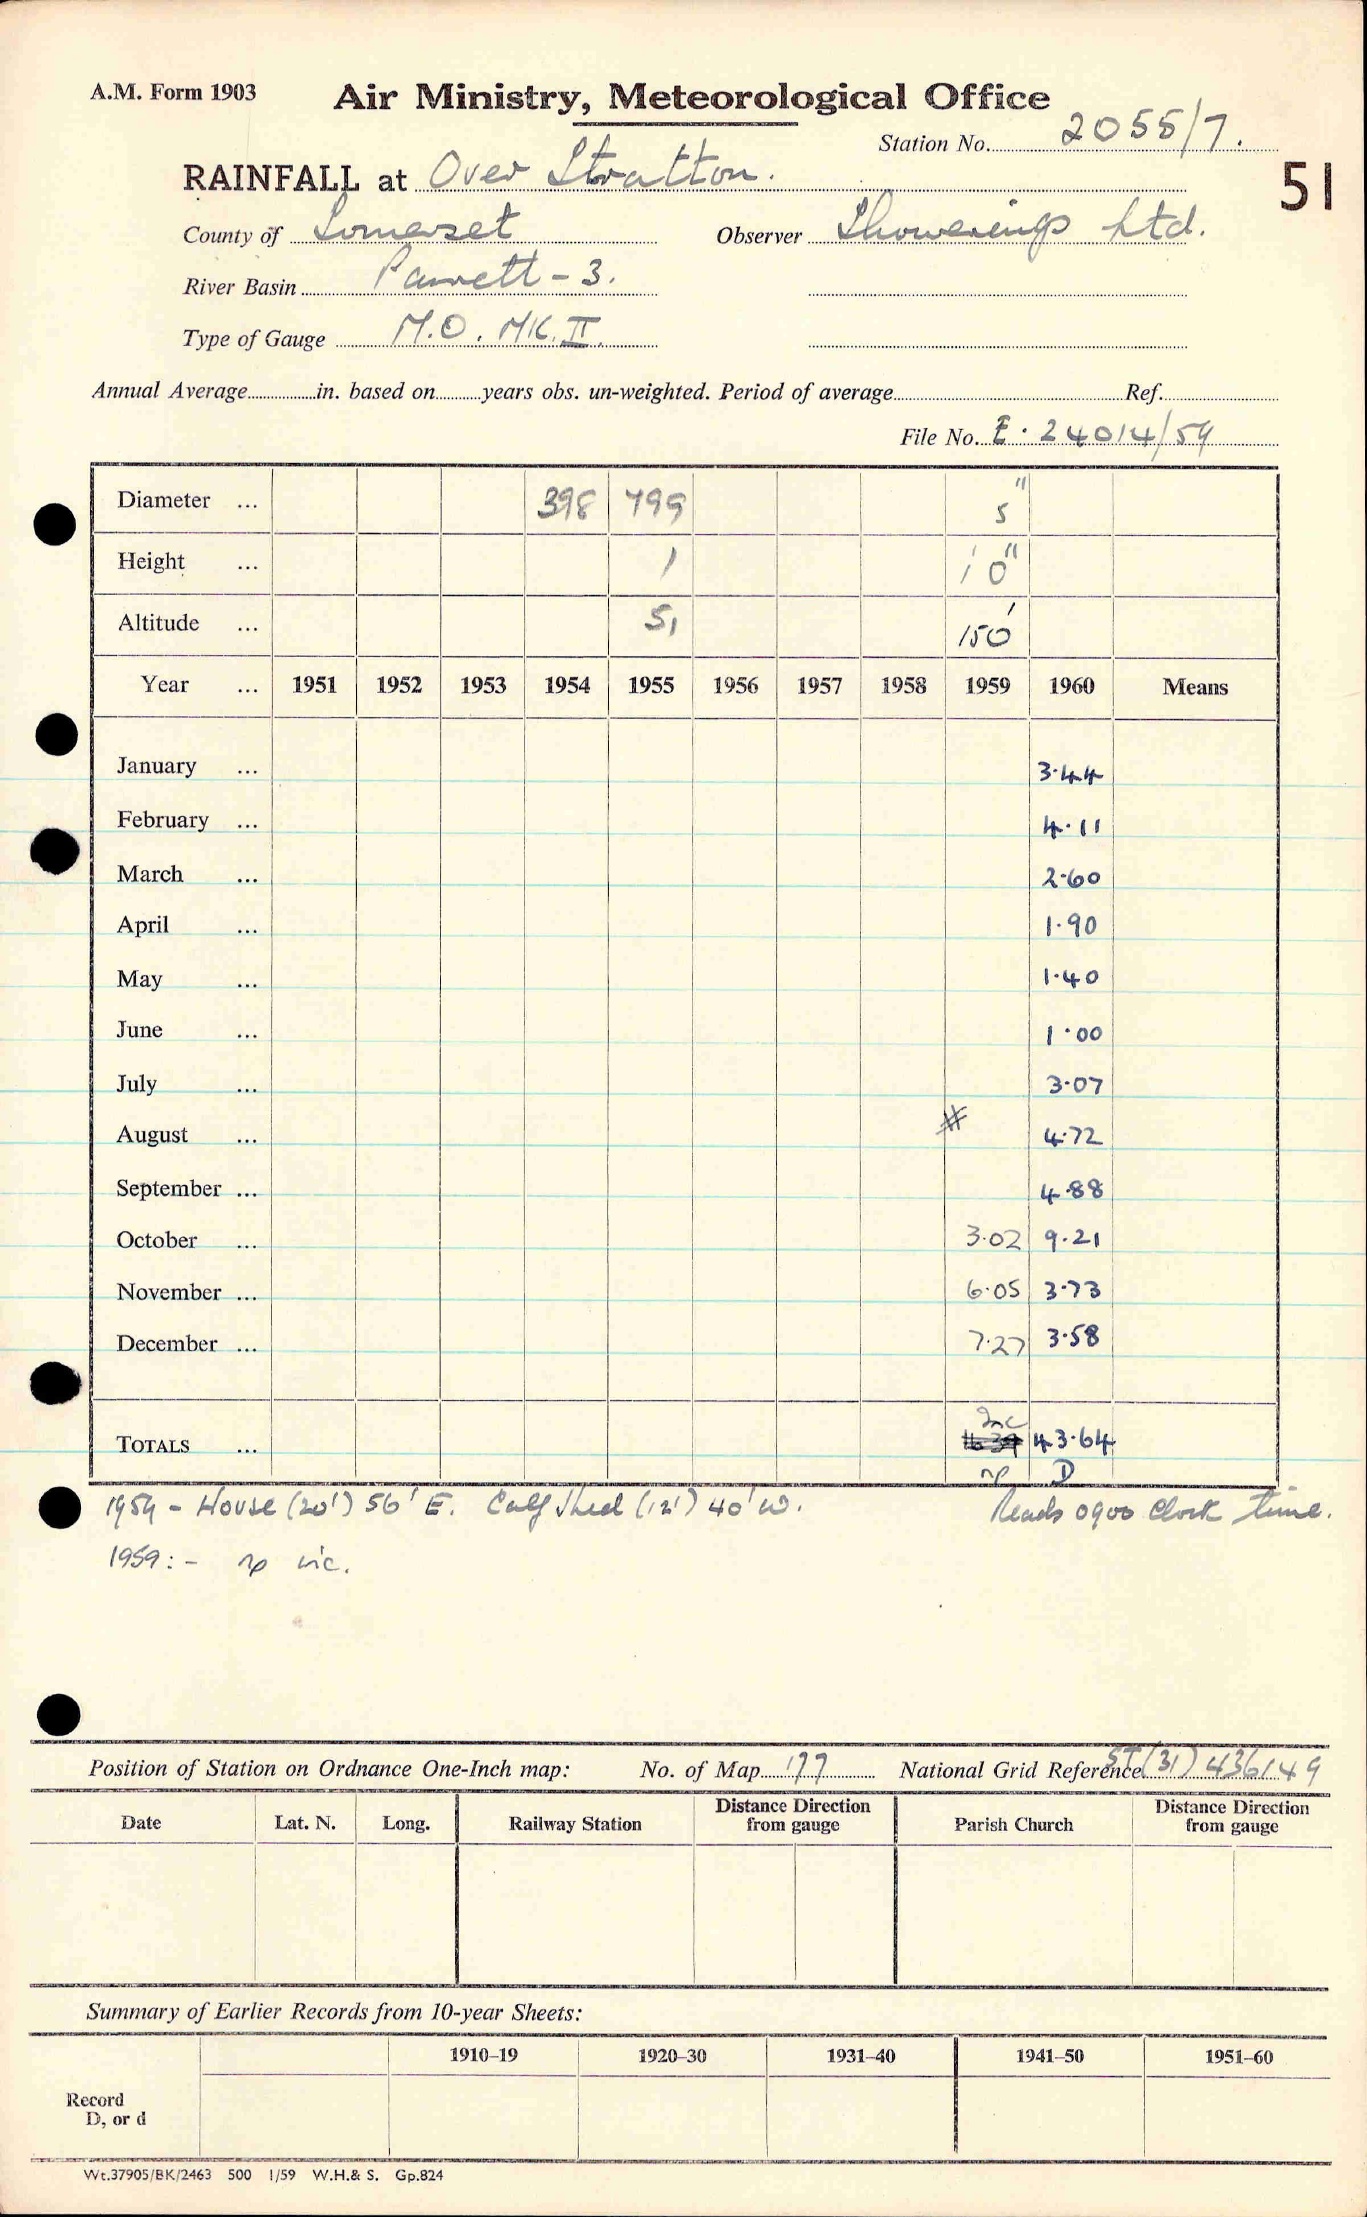 A.M. Form 1903
Air Ministry, Meteorological Office
Station No. 2055/7.
51
RAINFALL at Over Stratton.
County of Somerset Observer Showerings Ltd.
River Basin Parrett - 3.
Type of Gauge M.O. MK. II.
Annual Average in. based on years obs. un-weighted. Period of average Ref.
File No. E. 24014/59
Diameter ... 398 799 5"
Height ... 1 1' 0"
Altitude ... 51 150'
Year ... 1951 1952 1953 1954 1955 1956 1957 1958 1959 1960 Means
January ... 3.44
February ... 4.11
March ... 2.60
April ... 1.90
May ... 1.40
June ... 1.00
July ... 3.07
August ... # 4.72
September ... 4.88
October ... 3.02 9.21
November ... 6.05 3.73
December ... 7.27 3.58
Inc
TOTALS ... 43.64
np D
1959 - House (20') 56' E. Calf Shed (12') 40' W. Reads 0900 Clock time.
1959 : - np inc.
Position of Station on Ordnance One-Inch map: No. of Map 177 National Grid Reference ST(31) 436149
Date Lat. N. Long. Railway Station Distance Direction from gauge Parish Church Distance Direction from gauge
Summary of Earlier Records from 10-year Sheets:
1910–19 1920–30 1931–40 1941–50 1951–60
Record
D, or d
Wt.37905/BK/2463 500 1/59 W.H.& S. Gp.824